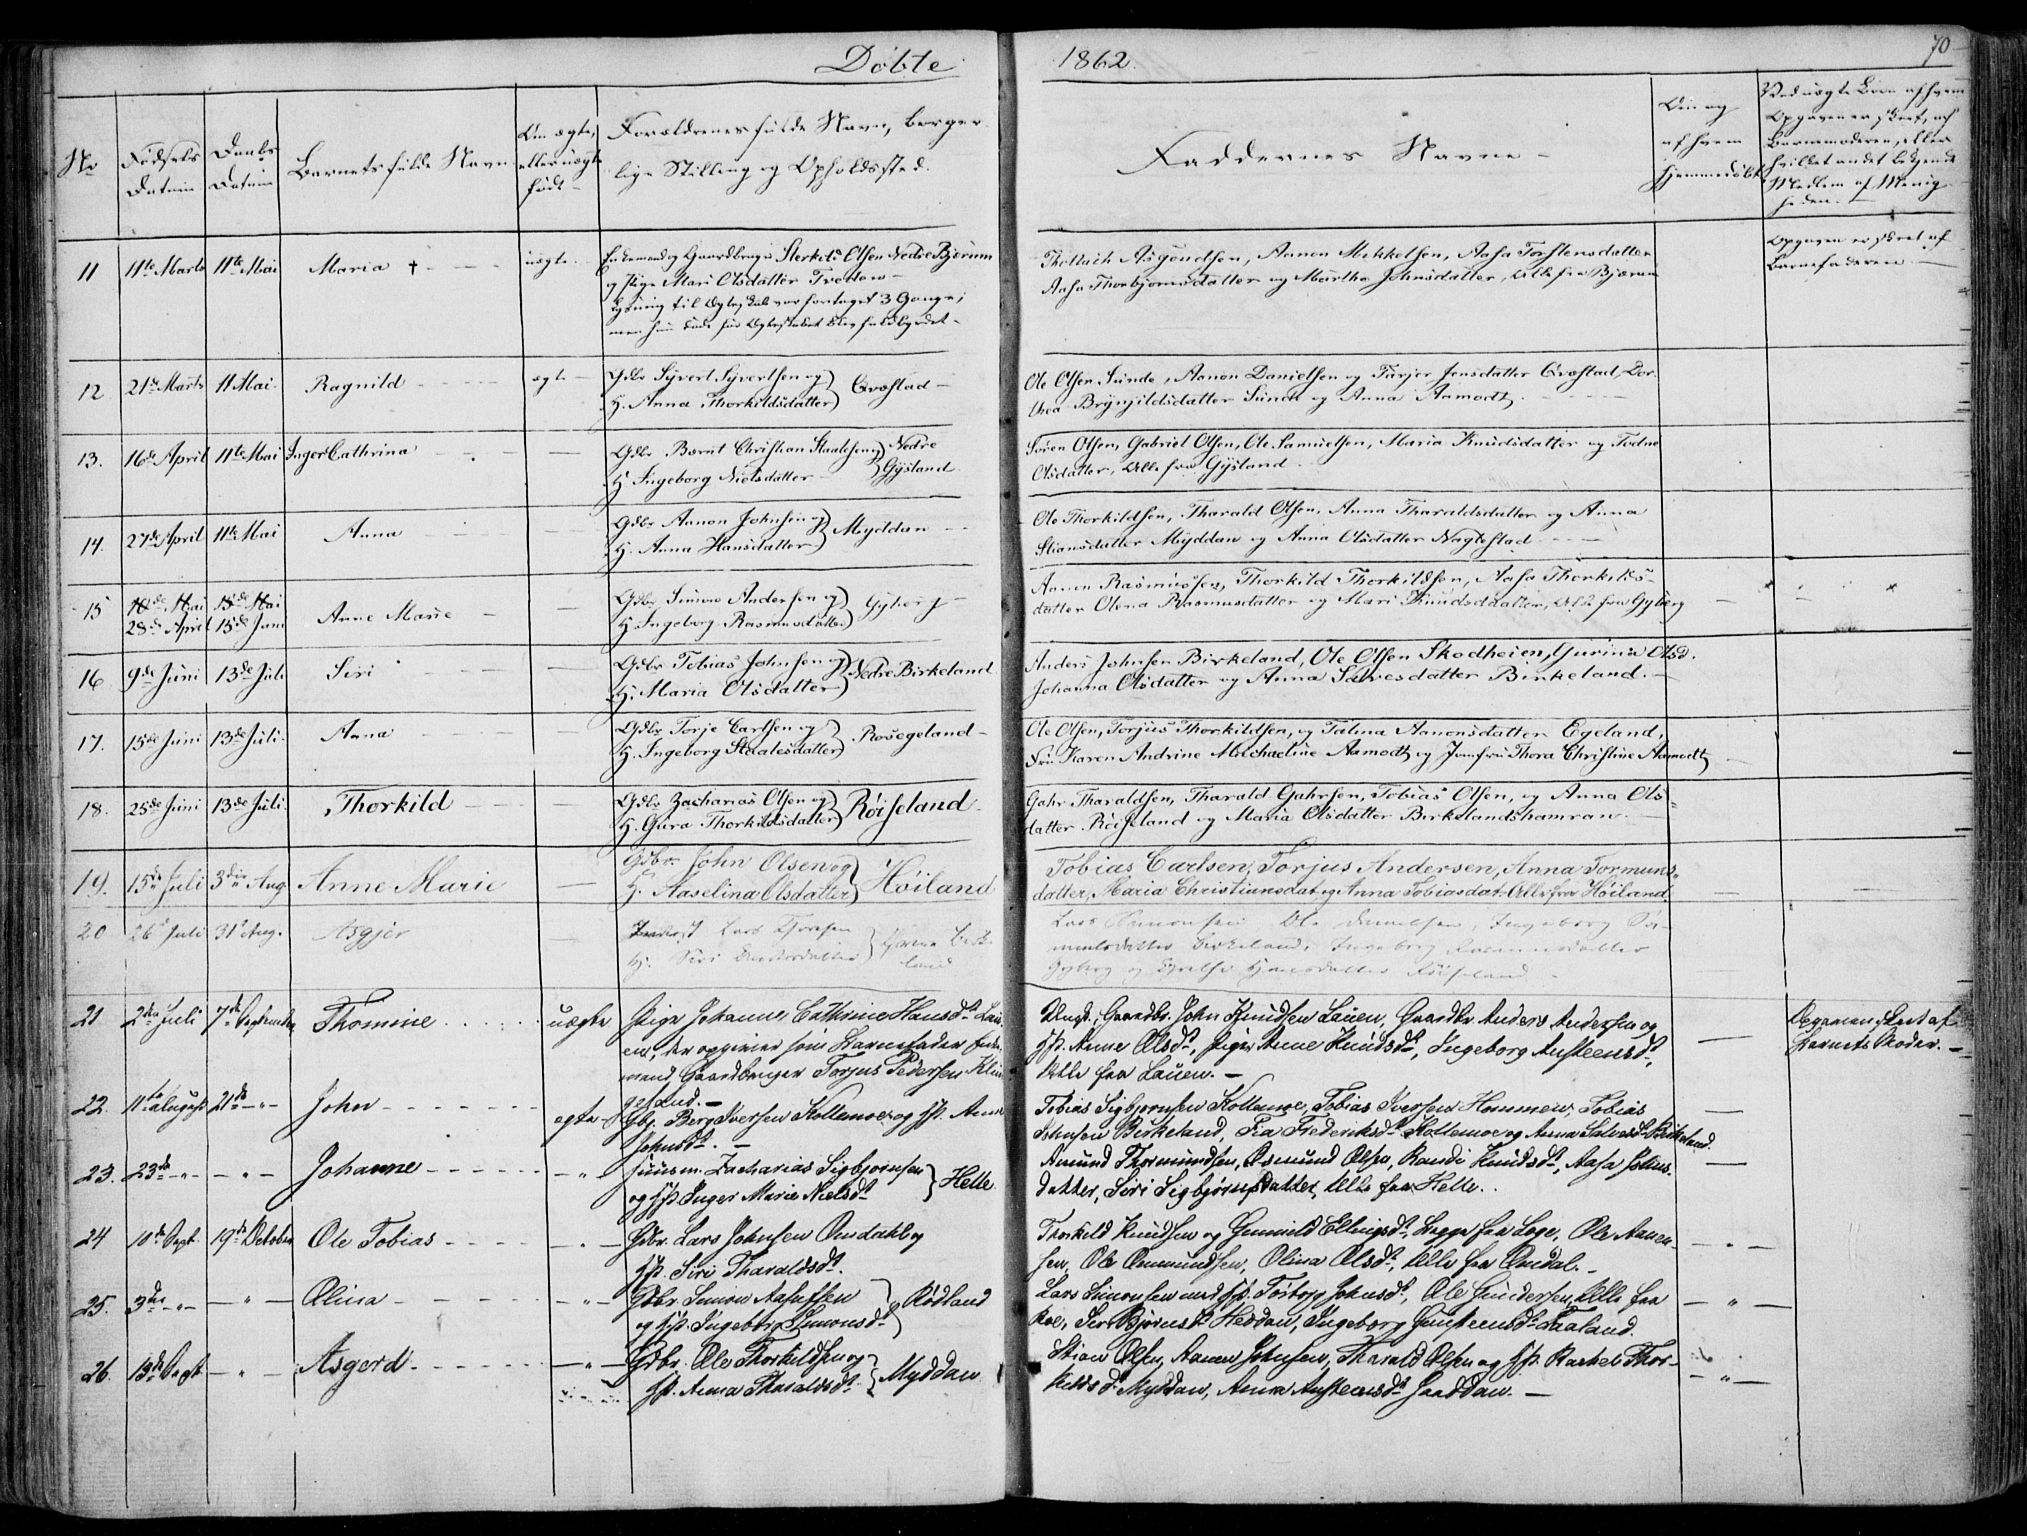 Døbte
1862.
70
No
Fødsels Datum
Daabs Datum
Barnets fulde Navn
Om ægte, eller uægte født
Forældrenes fulde Navn, borgerlige Stilling og Opholdssted.
Faddernes Navne
Om og af hvem hjemmedøbt
Ved uægte Børn af hvem Opgaven er skeet, af Barnemoderen, eller hvilket andet bekjendt Medlem af Menigheden.
11 11te Marts 11te Mai Maria † uægte Enkemand og Gaardbruger Sterkels Olsen Nedre Bjørum
og Pige Mari Olsdatter Tvetene
Lysning til Ægteskab var foretaget 3 Gange;
men hun døde før Ægteskabet blev fuldbyrdet
Thollach Asgoudsen, Aanon Mikkelsen, Aasa Torstensdatter
Aasa Thorbjornsdatter og Martha Johnsdatter, Alle fra Bjørum
Opgaven er skeet af
Barnefaderen
12 21de Marts 11 Mai Ragnild ægte Gdbr Syvert Syvertsen og
H. Anna Thorkildsdatter Qvæstad
Ole Olsen Sunde, Aanon Danielsen og Tarjer Jensdatter Qvæstad, Dor-
thea Brynjildsdatter Sunde og Anna Aamodt.
13. 16de April 11te Mai Inger Cathrina Gdbr Bernt Christian Staalesen og Nedre
H Ingeborg Nielsdatter Gysland
Søren Olsen, Gabriel Olsen, Ole Samuelsen, Maria Knudsdatter og Todne
Olsdatter, Alle fra Gysland.
14. 27de April 11te Mai Anna Gdbr Aanon Johnsen og
H. Anna Hansdatter Myddan
Ole Thorkildsen, Tharald Olsen, Anna Tharaldsdatter og Anna
Stiansdatter Myddan og Anna Olsdatter Nagtestad
15 18de Mai 15de Mai
28de April 15de Juni Anne Marie Gdbr Simon Andersen og
H Ingeborg Rasmusdatter Gyberg
Aanon Rasmussen, Thorkild Thorkildsen, Aasa Thorkilds-
datter Olena Rasmusdatter og Mari Knudsdatter, Alle fra Gyberg
16 9de Juni 13de Juli Siri Gdbr Tobias Johnsen og
H. Maria Olsdatter Nedre Birkeland
Anders Johnsen Birkeland, Ole Olsen Skodheien, Gurina Olsd.
Johanna Olsdatter og Anna Salvesdatter Birkeland.
17. 15de Juni 13de Juli. Anna Gdbr Torje Carlsen og
H. Ingeborg Staalesdatter Rosegeland
Ole Olsen, Torjus Thorkildsen, og Talina Aanonsdatter Egeland,
Fru Karen Andrine Michaeline Aamodt og Jomfru Thora Christine Aamodt
18. 25de Juni 13de Juli. Thorkild Gdbr Zacharias Olsen og
H. Gura Thorkildsdatter Røiseland
Gahr Tharaldsen, Tharald Gahrsen, Tobias Olsen, og Anna Ols-
datter Røiseland og Maria Olsdatter Birkelandshamran.
19. 15de Juli 3die Aug. Anne Marie Gdbr. John Olsen og
H. Aaselina Olsdatter Høiland
Tobias Carlsen, Torjus Andersen, Anna Tormunds-
datter, Maria Christiansdat. og Anna Tobiasdat. Alle fra Høiland
20 26de Juli 31te Aug. Asgjer Lars
H. Siri
Lars Simonsen, Ole Danielsen, Ingeborg
Birkeland, Ingeborg Rasmusdatter
Gyberg og Hansdatter Røiseland
21 2den Juli 7de September Thomine uægte Pige Johanne Cathrine Hansdt Lau-
en, der opgiver som Barnefader Enke-
mand, Gaardbruger Torjus Pedersen Klun-
gesland.
Ungk., Gaardbr. John Knudsen Lauen, Gaardbr Anders Andersen og
Hst. Anne Olsdt, Pige Anne Knudsdt, Ingeborg Austeensdt,
Alle fra Lauen.
Opgaven skeet af
Barnets Moder.
22. 11te August 21de John ægte Gbr. Berge Iversen Kollemoe og Hst. Anne
Johnsdt.
Tobias Sigbjørnsen Kollemoe, Tobias Iversen Hommen, Tobias
Johnsen Birkeland, Fia Frederiksdt Kollemoe og Anna Salvesdt Birkeland.
23. 23de Johanne Huusm. Zacharias Sigbjørnsen
og Hst. Inger Marie Nielsdt Helle
Amund Thormundsen, Osmund Olsen, Randi Knudsdt, Aasa Julius-
datter, Siri Sigbjørnsdatter, Alle fra Helle.
24 10de Sept. 19de October Ole Tobias Gdbr. Lars Johnsen Omdahl og
Hst. Siri Tharaldsdt.
Thorkild Knudsen og Gunnild Ellingsdt, begge fra Lege, Ole Aanon-
sen, Ole Omundsen, Olina Olsdt, Alle fra Omdal.
25. 3die Olina Gdbr. Simon Aasulfsen
og Hst. Ingeborg Simonsdt Rødland
Lars Simonsen med Hst. Torborg Johnsdt, Ole Gundersen, Alle fra
Roe, Ser. Bjørnsdt Heddan, Ingeborg Gunsteensdt Faaland.
26. 13de Sept Asgerd Gdbr. Ole Thorkildsen og
Hst. Anna Tharaldsdt. Myddan
Stian Olsen, Aanon Johnsen, Tharald Olsen og Hst. Rachel Thor-
kildsdt Myddan, Anna Austeensdt Haaddan.